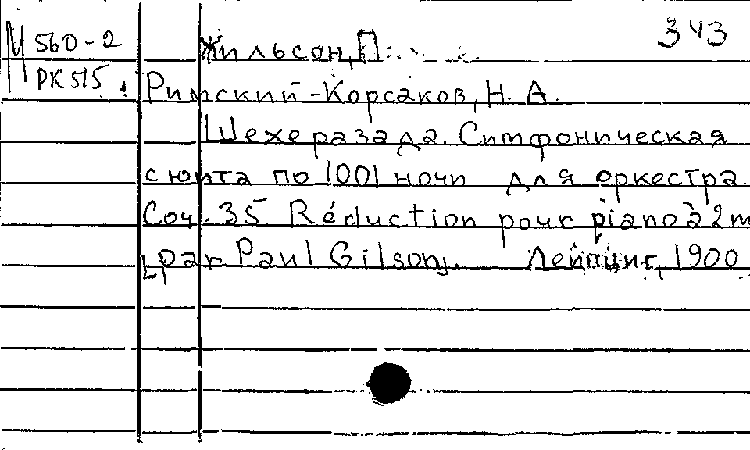 М 560-2 Жильсон, П. 343
РК 515. Римский-Корсаков, Н. А.
Шехеразада. Симфоническая
сюита по 1001 ночи для оркестра.
Соч. 35 Réduction pour piano à 2 m
[par Paul Gilson]. Лейпциг, 1900